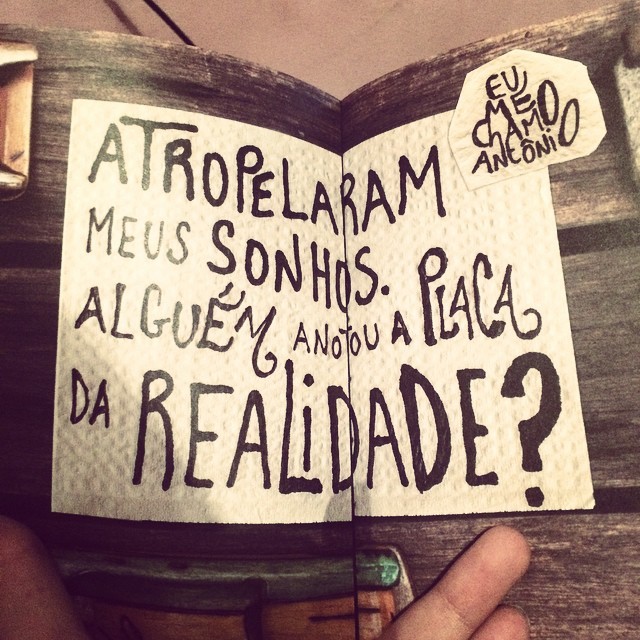 EU
ME
CHAMO
ANTÔNIO
ATROPELARAM
MEUS SONHOS.
ALGUÉM ANOTOU A PLACA
DA REALIDADE?